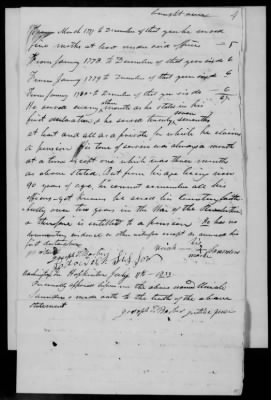 brought over 4
From March 1777 to December of that year he served
five months at least under said officers — 5
From January 1778 to December of this year six do 6
From January 1779 to December of this year six do 6
From January 1780 to December of this year six do 6
He served every other month as he states in his
first declaration, he served twenty seven months
at least and all as a private for which he claims
a pension His time of service was always a month
at a time except one which was three months
as above stated. But from his age being now
90 years of age, he cannot remember all his
officers yet knows he served his Country faith
fully over two years in the War of the Revolution
& therefore is entitled to a pension. He has no
documentary evidence or other witnesses except as annexed his
first declaration
his
Uriah X Saunders
mark
Joseph T Barber
Washington Hopkinton July 9th 1833
Personally appeared before me the above named Uriah
Saunders & made oath to the truth of the above
statement
Joseph T Barber Justice peace